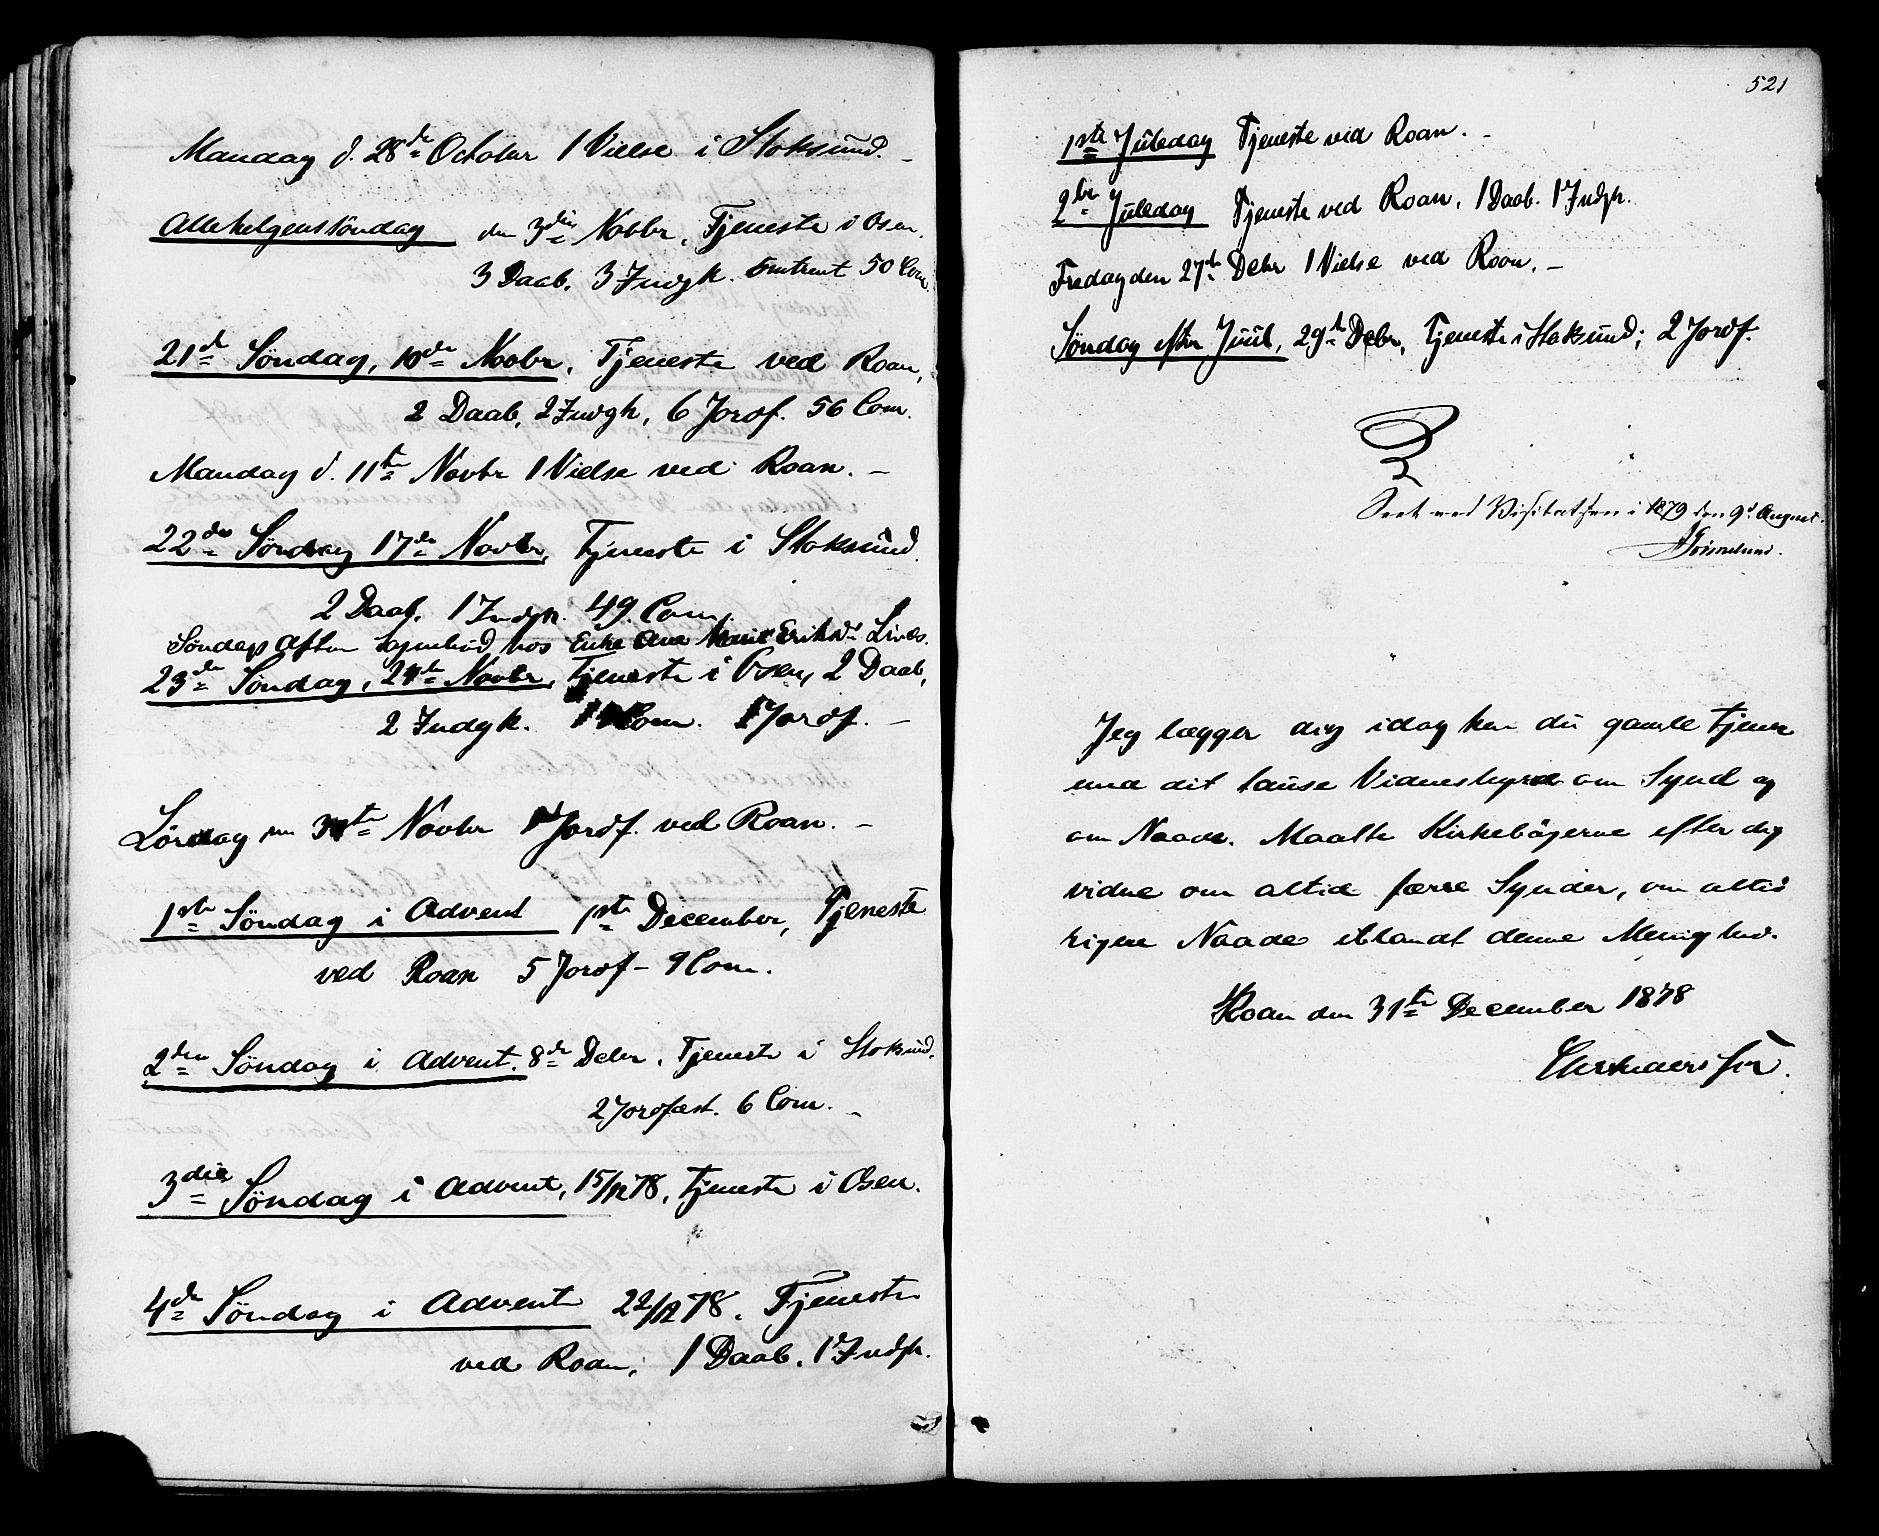 Mandag d. 28de October 1 Vielse i Stoksund. –
Allehelgenssöndag den 3die Novbr, Tjeneste i Osen.
3 Daab. 3 Indgk. Omtrent 50 Com.
21de Søndag, 10de Novbr, Tjeneste ved Roan,
2 Daab, 2 Indgk, 6 Jordf. 56 Com.
Mandag d. 11te Novbr 1 Vielse ved Roan. –
22de Søndag 17de Novbr, Tjeneste i Stoksund.
2 Daab. 1 Indgk. 49. Com.
Søndags Aften Sognebud hos Enke Ane Marie Eriksdr Lines.
23de Søndag, 24de Novbr, Tjeneste i Osen, 2 Daab,
2 Indgk. Com. 1 Jordf. –
Lørdag den Novbr Jordf. ved Roan. –
1ste Søndag i Advent 1ste December, Tjeneste
ved Roan 5 Jordf – 9 Com.
2den Søndag i Advent. 8de Decbr, Tjeneste i Stoksund.
2 Jordfæst. 6 Com. –
3die Søndag i Advent, 15/12 78, Tjeneste i Osen.
4de Søndag i Advent 22/12 78. Tjeneste
ved Roan, 1 Daab. 1 Indgk.
521
1ste Juledag Tjeneste ved Roan. –
2den Juledag Tjeneste ved Roan, 1 Daab. 1 Indgk.
Fredag den 27de Decbr 1 Vielse ved Roan. –
Søndag efter Juul, 29de Decbr, Tjeneste i Stoksund; 2 Jordf.
Seet ved Visitatsen i 1879 den 9d August.
Jeg lægger dig idag hen du gamle Tjener
med dit tause Vidnesbyrd om Synd og
om Naade. Maatte Kirkebøgerne efter dig
vidne om altid færre Synder, om altid
rigere Naade iblandt denne Menighed.
Roan den 31te December 1878